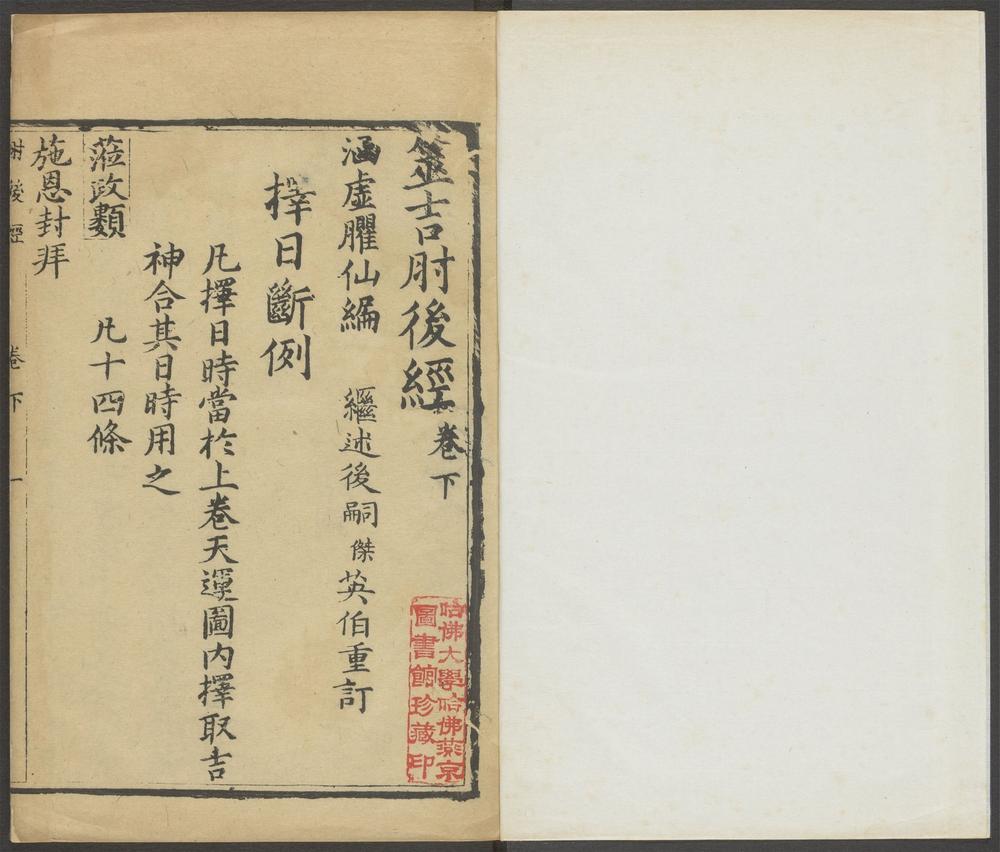 筮吉肘後經卷下
涵虛臞仙編 繼述後嗣傑英伯重訂
擇日斷例
凡擇日時當於上卷天運圖內擇取吉
神合其日時用之
蒞政類 凡十四條
施恩封拜
肘後經 卷下 一
哈佛大學哈佛燕京
圖書館珍藏印